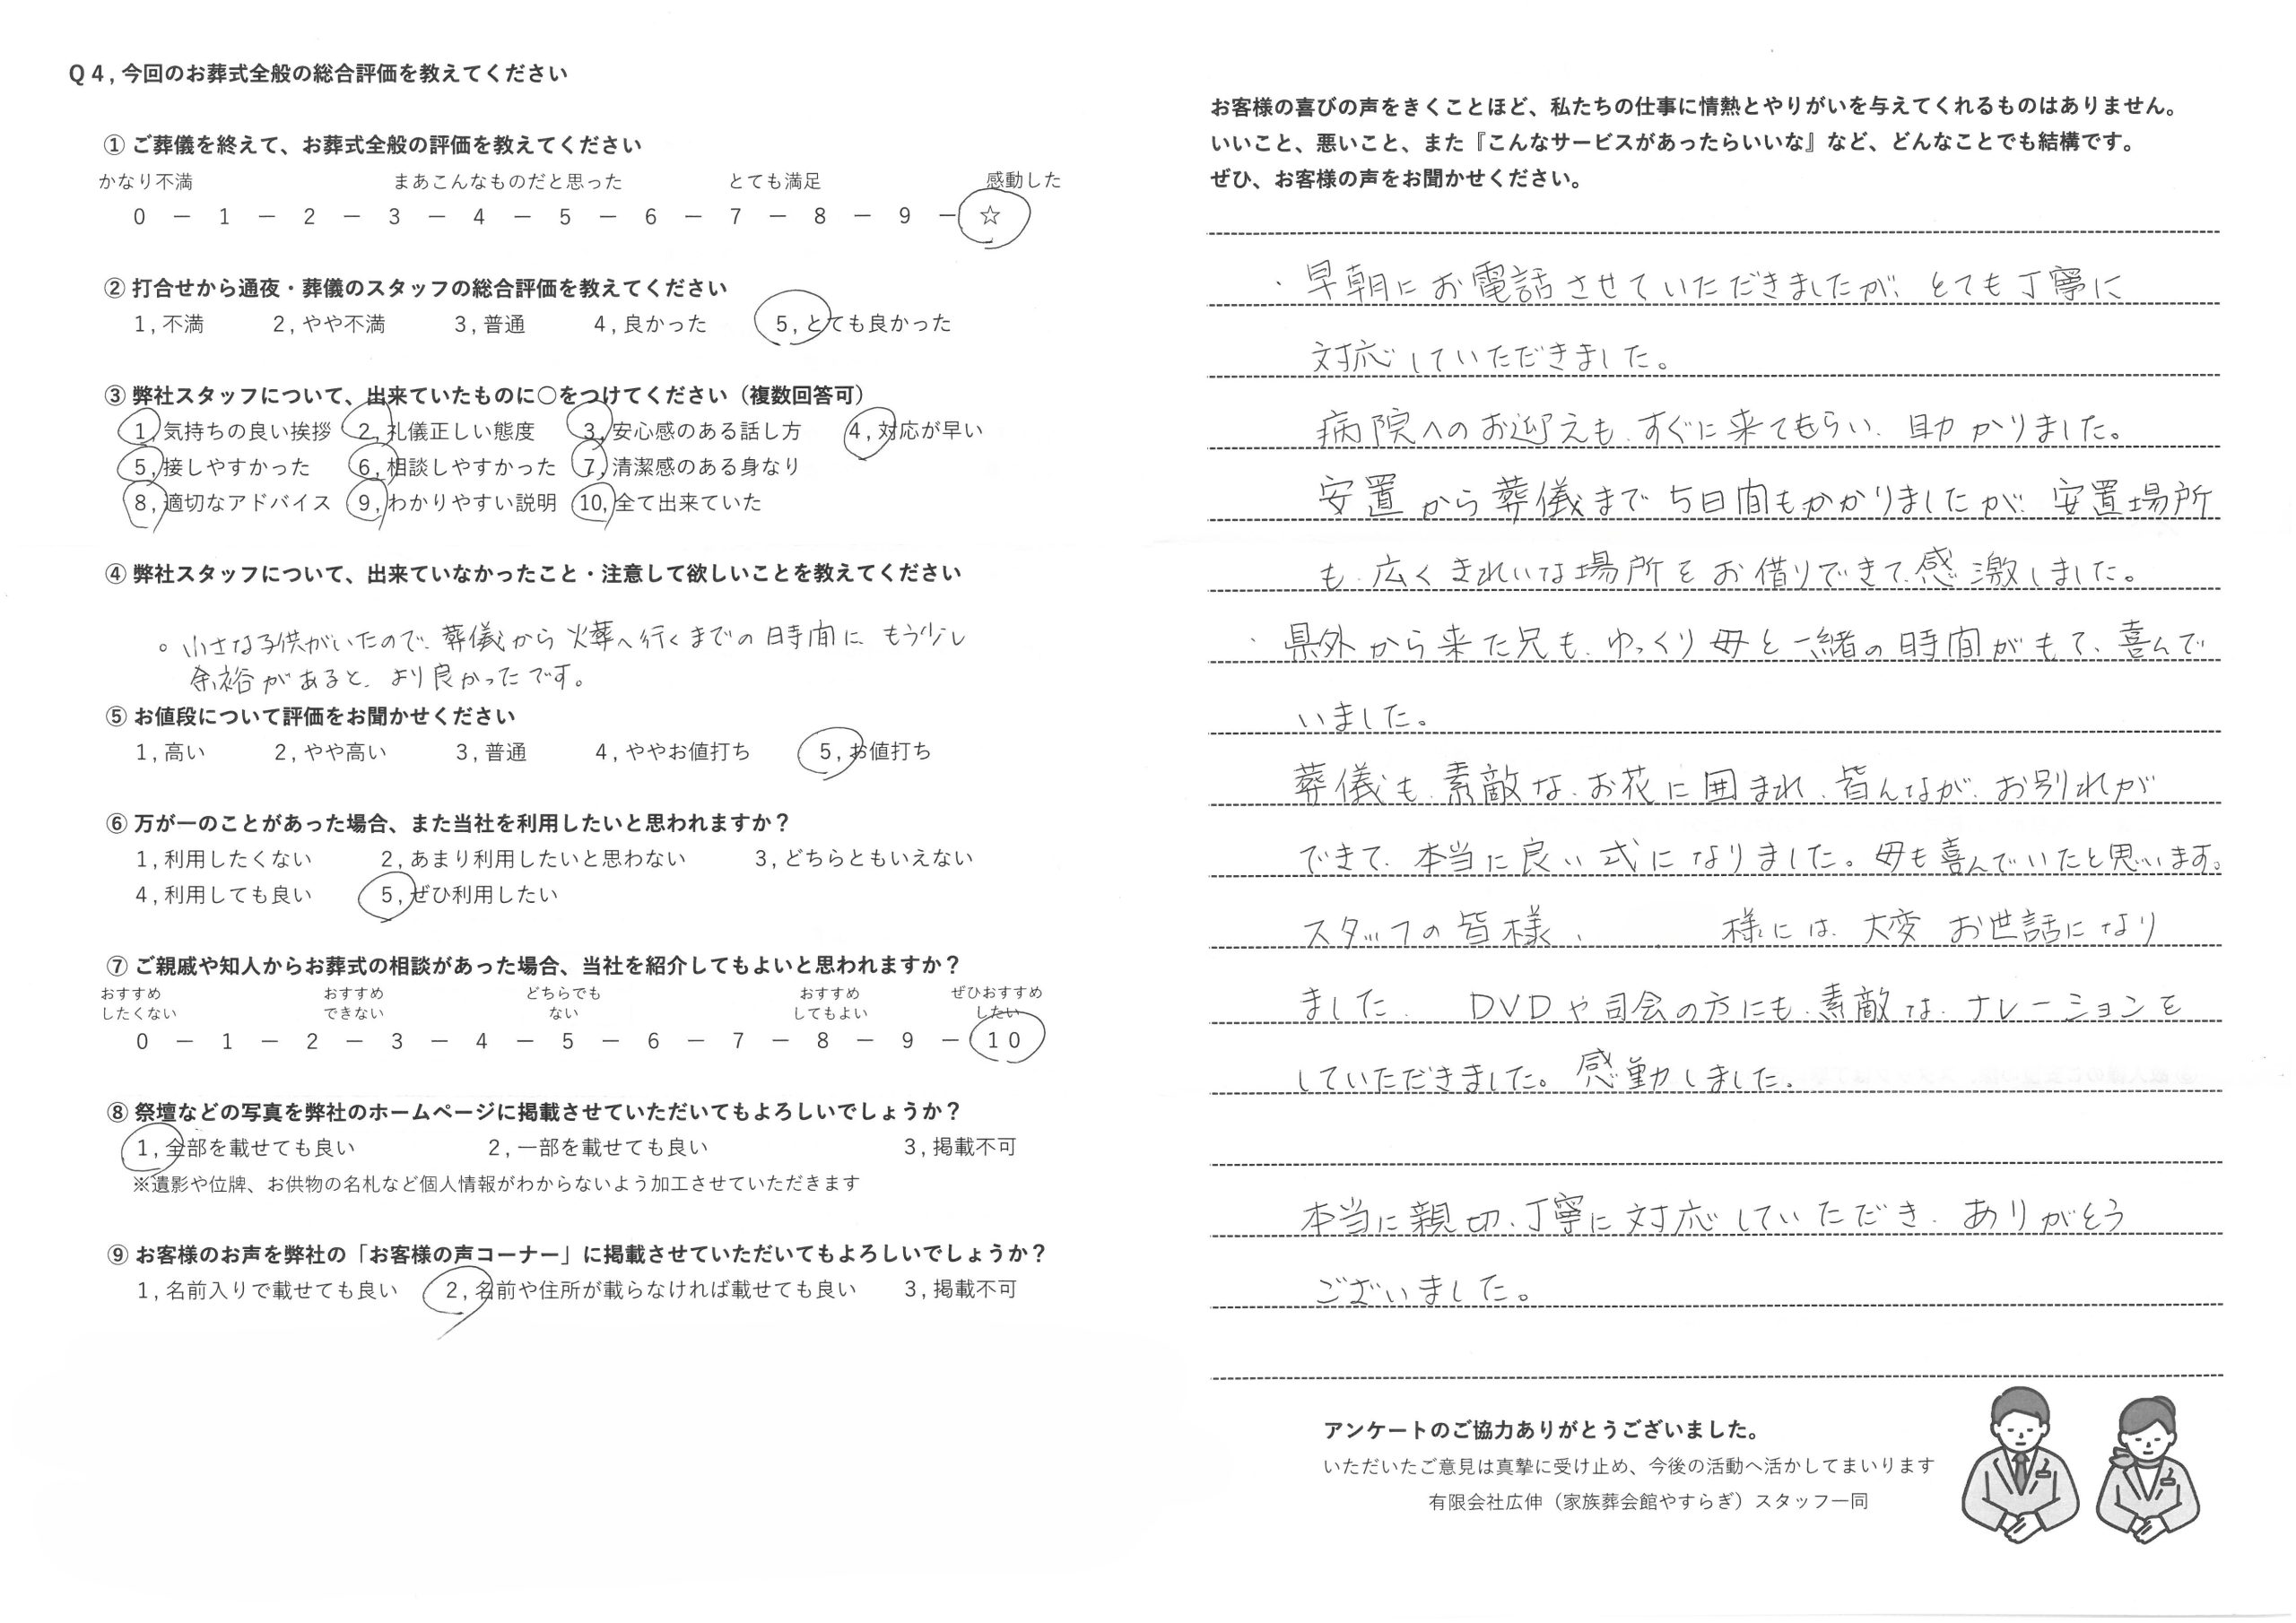 Q4,今回のお葬式全般の総合評価を教えてください
① ご葬儀を終えて、お葬式全般の評価を教えてください
かなり不満 まあこんなものだと思った とても満足 感動した
0 － 1 － 2 － 3 － 4 － 5 － 6 － 7 － 8 － 9 － ☆
② 打合せから通夜・葬儀のスタッフの総合評価を教えてください
1,不満 2,やや不満 3,普通 4,良かった 5,とても良かった
③ 弊社スタッフについて、出来ていたものに○をつけてください（複数回答可）
1,気持ちの良い挨拶 2,礼儀正しい態度 3,安心感のある話し方 4,対応が早い
5,接しやすかった 6,相談しやすかった 7,清潔感のある身なり
8,適切なアドバイス 9,わかりやすい説明 10,全て出来ていた
④ 弊社スタッフについて、出来ていなかったこと・注意して欲しいことを教えてください
。小さな子供がいたので、葬儀から火葬へ行くまでの時間に、もう少し
余裕があると、より良かったです。
⑤ お値段について評価をお聞かせください
1,高い 2,やや高い 3,普通 4,ややお値打ち 5,お値打ち
⑥ 万が一のことがあった場合、また当社を利用したいと思われますか？
1,利用したくない 2,あまり利用したいと思わない 3,どちらともいえない
4,利用しても良い 5,ぜひ利用したい
⑦ ご親戚や知人からお葬式の相談があった場合、当社を紹介してもよいと思われますか？
おすすめ おすすめ どちらでも おすすめ ぜひおすすめ
したくない できない ない してもよい したい
0 － 1 － 2 － 3 － 4 － 5 － 6 － 7 － 8 － 9 － 10
⑧ 祭壇などの写真を弊社のホームページに掲載させていただいてもよろしいでしょうか？
1,全部を載せても良い 2,一部を載せても良い 3,掲載不可
※遺影や位牌、お供物の名札など個人情報がわからないよう加工させていただきます
⑨ お客様のお声を弊社の「お客様の声コーナー」に掲載させていただいてもよろしいでしょうか？
1,名前入りで載せても良い 2,名前や住所が載らなければ載せても良い 3,掲載不可
お客様の喜びの声をきくことほど、私たちの仕事に情熱とやりがいを与えてくれるものはありません。
いいこと、悪いこと、また『こんなサービスがあったらいいな』など、どんなことでも結構です。
ぜひ、お客様の声をお聞かせください。
・早朝にお電話させていただきましたが、とても丁寧に
対応していただきました。
病院へのお迎えも、すぐに来てもらい、助かりました。
安置から葬儀まで5日間もかかりましたが、安置場所
も、広くきれいな場所をお借りできて、感激しました。
・県外から来た兄も、ゆっくり母と一緒の時間がもて、喜んで
いました。
葬儀も、素敵な、お花に囲まれ、皆んなが、お別れが
できて、本当に良い式になりました。母も喜んでいたと思います。
スタッフの皆様、 様には、大変 お世話になり
ました、 DVDや司会の方にも、素敵な、ナレーションを
していただきました。感動しました。
本当に親切、丁寧に対応していただき、ありがとう
ございました。
アンケートのご協力ありがとうございました。
いただいたご意見は真摯に受け止め、今後の活動へ活かしてまいります
有限会社広伸（家族葬会館やすらぎ）スタッフ一同